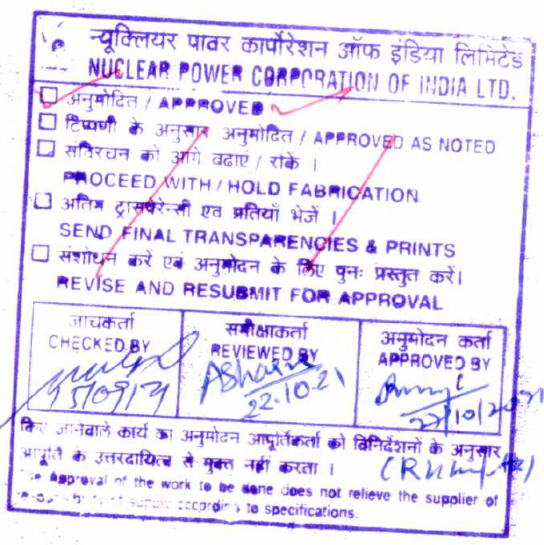 न्यूक्लियर पावर कार्पोरेशन ऑफ इंडिया लिमिटेड
NUCLEAR POWER CORPORATION OF INDIA LTD.
अनुमोदित / APPROVED
टिप्पणी के अनुसार अनुमोदित / APPROVED AS NOTED
संविरचन को आगे बढाएं / रोकें ।
PROCEED WITH / HOLD FABRICATION
अंतिम ट्रांसपरेन्सी एवं प्रतियाँ भेजें ।
SEND FINAL TRANSPARENCIES & PRINTS
संशोधन करें एवं अनुमोदन के लिए पुनः प्रस्तुत करें।
REVISE AND RESUBMIT FOR APPROVAL
जाचकर्ता
CHECKED BY
समीक्षाकर्ता
REVIEWED BY
22.10.21
अनुमोदन कर्ता
APPROVED BY
22/10/2021
किए जानेवाले कार्य का अनुमोदन आपूर्तिकर्ता को विनिर्देशनों के अनुसार
आपूर्ति के उत्तरदायित्व से मुक्त नहीं करता ।
Approval of the work to be done does not relieve the supplier of
of supply according to specifications.